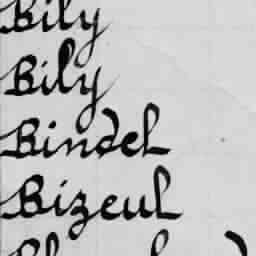 Bily
Bily
Bindel
Bizeul